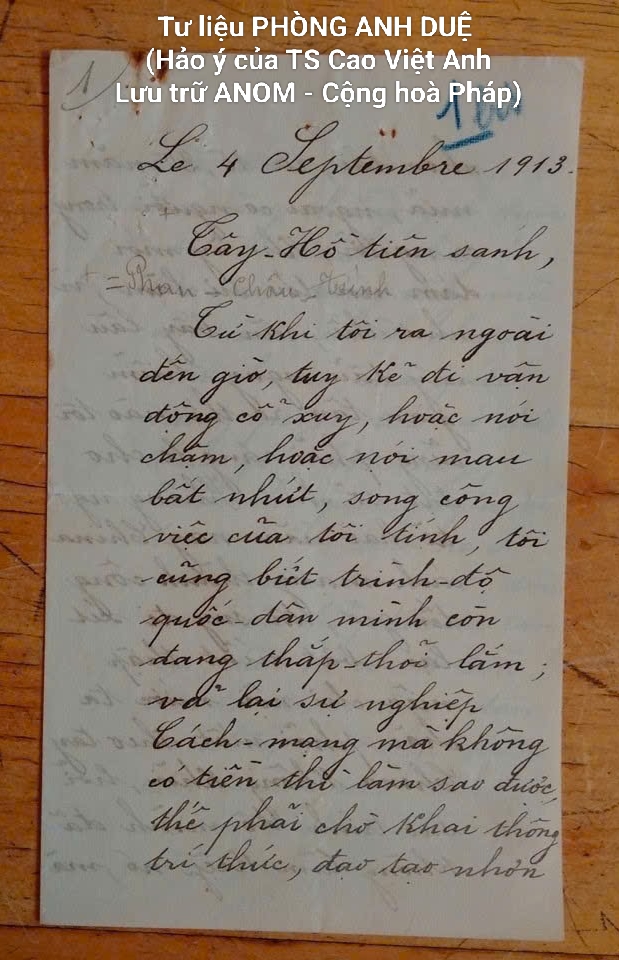 Tư liệu PHÒNG ANH DUỆ
(Hảo ý của TS Cao Việt Anh
Lưu trữ ANOM - Cộng hoà Pháp)
1
Le 4 Septembre 1913.
Tây-Hồ tiên sanh,
= Phan-Châu-Trinh
Từ khi tôi ra ngoài
đến giờ, tuy kẻ đi vận
động cổ xuy, hoặc nói
chậm, hoặc nói mau
bất nhứt, song công
việc của tôi tính, tôi
cũng biết trình-độ
quốc-dân mình còn
đang thấp-thỏi lắm;
vả lại sự nghiệp
Cách-mạng mà không
có tiền thì làm sao được,
thế phải chờ khai thông
trí thức, đạo tạo nhơn